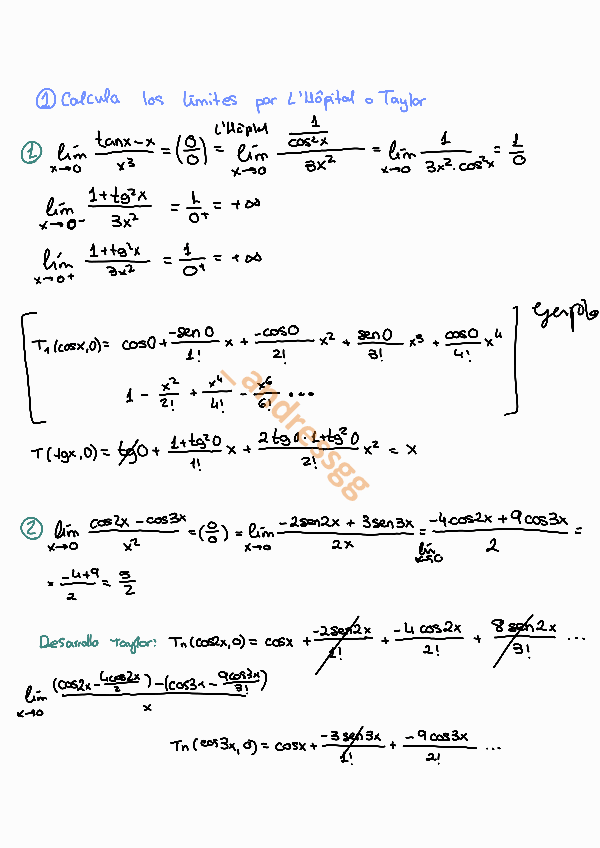 ① Calcula los límites por L'Hôpital o Taylor
① lím x→0 (tanx - x)/x³ = (0/0) = L'Hôpital lím x→0 (1/cos²x)/3x² = lím x→0 1/(3x²·cos²x) = 1/0
lím x→0⁻ (1+tg²x)/3x² = 1/0⁺ = +∞
lím x→0⁺ (1+tg²x)/3x² = 1/0⁺ = +∞
T₁(cosx,0) = cos0 + (-sen0)/1! x + (-cos0)/2! x² + sen0/3! x³ + cos0/4! x⁴ ] Ejemplo
1 - x²/2! + x⁴/4! - x⁶/6! ...
_andressgg
T(tgx,0) = tg0 + (1+tg²0)/1! x + (2tg0·1+tg²0)/2! x² = x
② lím x→0 (cos2x - cos3x)/x² = (0/0) = lím x→0 (-2sen2x + 3sen3x)/2x = lím x→0 (-4cos2x + 9cos3x)/2 =
= (-4+9)/2 = 5/2
Desarrollo Taylor: Tn(cos2x,0) = cosx + (-2sen2x)/1! + (-4cos2x)/2! + (8sen2x)/3! ...
lím x→0 ((cos2x - 4cos2x/2) - (cos3x - 9cos3x/3!))/x
Tn(cos3x,0) = cosx + (-3sen3x)/1! + (-9cos3x)/2! ...